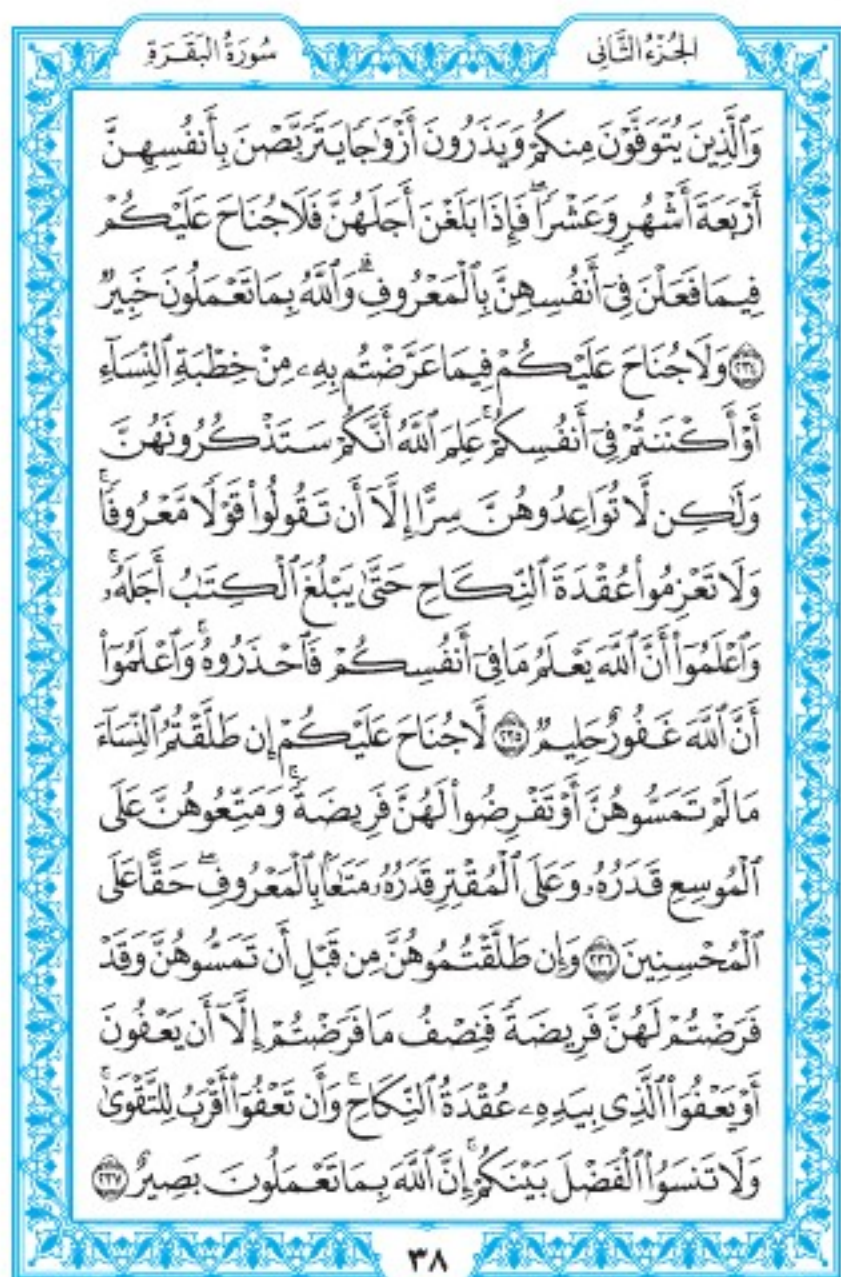 الجُزْءُ الثَّانِي
سُورَةُ البَقَرَةِ
وَٱلَّذِينَ يُتَوَفَّوْنَ مِنكُمْ وَيَذَرُونَ أَزْوَٰجًا يَتَرَبَّصْنَ بِأَنفُسِهِنَّ
أَرْبَعَةَ أَشْهُرٍ وَعَشْرًاۖ فَإِذَا بَلَغْنَ أَجَلَهُنَّ فَلَا جُنَاحَ عَلَيْكُمْ
فِيمَا فَعَلْنَ فِىٓ أَنفُسِهِنَّ بِٱلْمَعْرُوفِۗ وَٱللَّهُ بِمَا تَعْمَلُونَ خَبِيرٌ
﴿٢٣٤﴾ وَلَا جُنَاحَ عَلَيْكُمْ فِيمَا عَرَّضْتُم بِهِۦ مِنْ خِطْبَةِ ٱلنِّسَآءِ
أَوْ أَكْنَنتُمْ فِىٓ أَنفُسِكُمْۚ عَلِمَ ٱللَّهُ أَنَّكُمْ سَتَذْكُرُونَهُنَّ
وَلَٰكِن لَّا تُوَاعِدُوهُنَّ سِرًّا إِلَّآ أَن تَقُولُوا۟ قَوْلًا مَّعْرُوفًاۚ
وَلَا تَعْزِمُوا۟ عُقْدَةَ ٱلنِّكَاحِ حَتَّىٰ يَبْلُغَ ٱلْكِتَٰبُ أَجَلَهُۥۚ
وَٱعْلَمُوٓا۟ أَنَّ ٱللَّهَ يَعْلَمُ مَا فِىٓ أَنفُسِكُمْ فَٱحْذَرُوهُۚ وَٱعْلَمُوٓا۟
أَنَّ ٱللَّهَ غَفُورٌ حَلِيمٌ ﴿٢٣٥﴾ لَّا جُنَاحَ عَلَيْكُمْ إِن طَلَّقْتُمُ ٱلنِّسَآءَ
مَا لَمْ تَمَسُّوهُنَّ أَوْ تَفْرِضُوا۟ لَهُنَّ فَرِيضَةًۚ وَمَتِّعُوهُنَّ عَلَى
ٱلْمُوسِعِ قَدَرُهُۥ وَعَلَى ٱلْمُقْتِرِ قَدَرُهُۥ مَتَٰعًۢا بِٱلْمَعْرُوفِۖ حَقًّا عَلَى
ٱلْمُحْسِنِينَ ﴿٢٣٦﴾ وَإِن طَلَّقْتُمُوهُنَّ مِن قَبْلِ أَن تَمَسُّوهُنَّ وَقَدْ
فَرَضْتُمْ لَهُنَّ فَرِيضَةً فَنِصْفُ مَا فَرَضْتُمْ إِلَّآ أَن يَعْفُونَ
أَوْ يَعْفُوَا۟ ٱلَّذِى بِيَدِهِۦ عُقْدَةُ ٱلنِّكَاحِۚ وَأَن تَعْفُوٓا۟ أَقْرَبُ لِلتَّقْوَىٰۚ
وَلَا تَنسَوُا۟ ٱلْفَضْلَ بَيْنَكُمْۚ إِنَّ ٱللَّهَ بِمَا تَعْمَلُونَ بَصِيرٌ ﴿٢٣٧﴾
٣٨